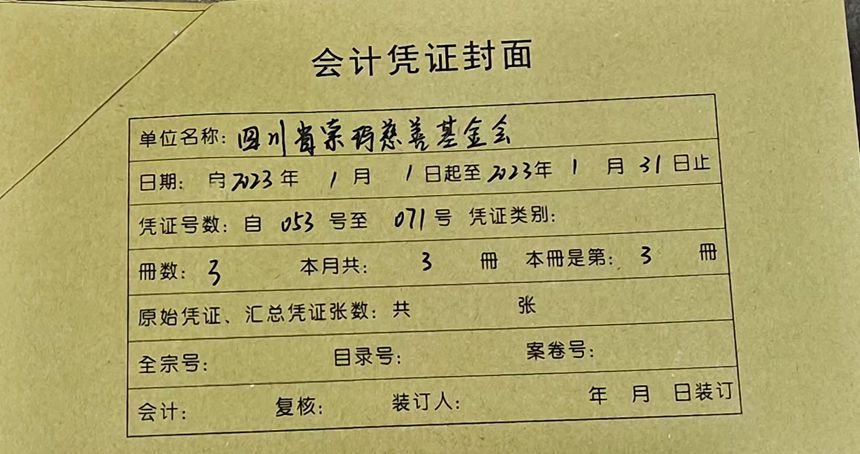 会计凭证封面
单位名称：四川省宗玛慈善基金会
日期：自2023年1月1日起至2023年1月31日止
凭证号数：自053号至071号 凭证类别：
册数：3 本月共：3册 本册是第：3册
原始凭证、汇总凭证张数：共 张
全宗号： 目录号： 案卷号：
会计： 复核： 装订人： 年 月 日装订